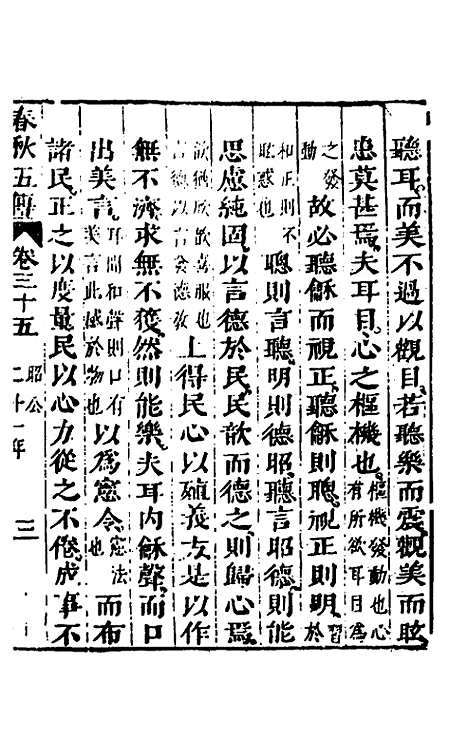 聽耳而美不過以觀目若聽樂而震觀美而眩
患莫甚焉夫耳目心之樞機也樞機發動也心有所欲耳目爲
之發動故必聽龢而視正聽龢則聰視正則明習於
和正則不眩惑也聰則言聽明則德昭聽言昭德則能
思慮純固以言德於民民歆而德之則歸心焉
歆猶欣欣喜服也言德以言發德教上得民心以殖義方是以作
無不濟求無不獲然則能樂夫耳内龢聲而口
出美言耳聞和聲則口有美言此感於物也以爲憲令憲法也而布
諸民正之以度量民以心力從之不倦成事不
春秋五傳 卷三十五 昭公 二十一年 三